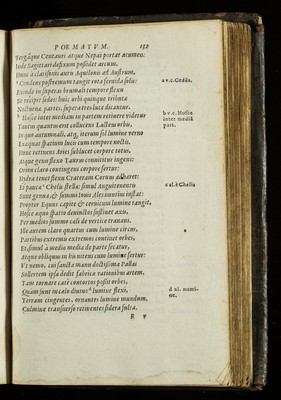 POEMATVM. 132
Tergáque Centauri atque Nepai portat acumen:
Inde Sagittari defixum posidet arcum,
Hunc à clarisonis auris Aquilonis ad Austrum,
Cendens postremum tangit rota fervida solis:
a v.c. Cedēs.
Exinde in superas brumali tempore flexu
Se recipit sedes: huic orbi quinque tributæ
Nocturnæ partes, supera tres luce dicantur.
b Hosce inter mediam in partem retinere videtur
b v.c. Hosce inter mediā part.
Tantus quantus erit collucens Lacteus orbis,
In quo autumnali, atq; iterum sol lumine verno
Exæquat spatium lucis cum tempore noctis.
Hunc retinens Aries sublucet corpore totus,
Atque genu flexo Taurus connititur ingens:
Orion claro contingens corpore fertur:
Hydra tenet flexu Crateram: Corvus adhæret:
Et pauca c Chelis stella: simul Anguitenentis
c al. è Chelis
Sunt genua, & summi Iovis Ales nuntius instat:
Propter Equus capite & cervicum lumine tangit,
Hosce æquo spatio devinctos sustinet axis,
Per medios summo cæli de vertice tranans.
Ille autem claro quartus cum lumine circus,
Partibus extremis extremos continet orbes,
Et simul à medio media de parte secatur,
Atque obliquus in his nitens cum lumine fertur:
Vt nemo, cui sancta manu doctissima Pallas
Sollertem ipsa dedit fabricæ rationibus artem,
Tam tornare catè contortos possit orbes,
Quàm sunt in cælo divino d lumine flexi,
d al. numine.
Terram cingentes, ornantes lumine mundum,
Culmine transverso retinentes sidera fulta.
R v